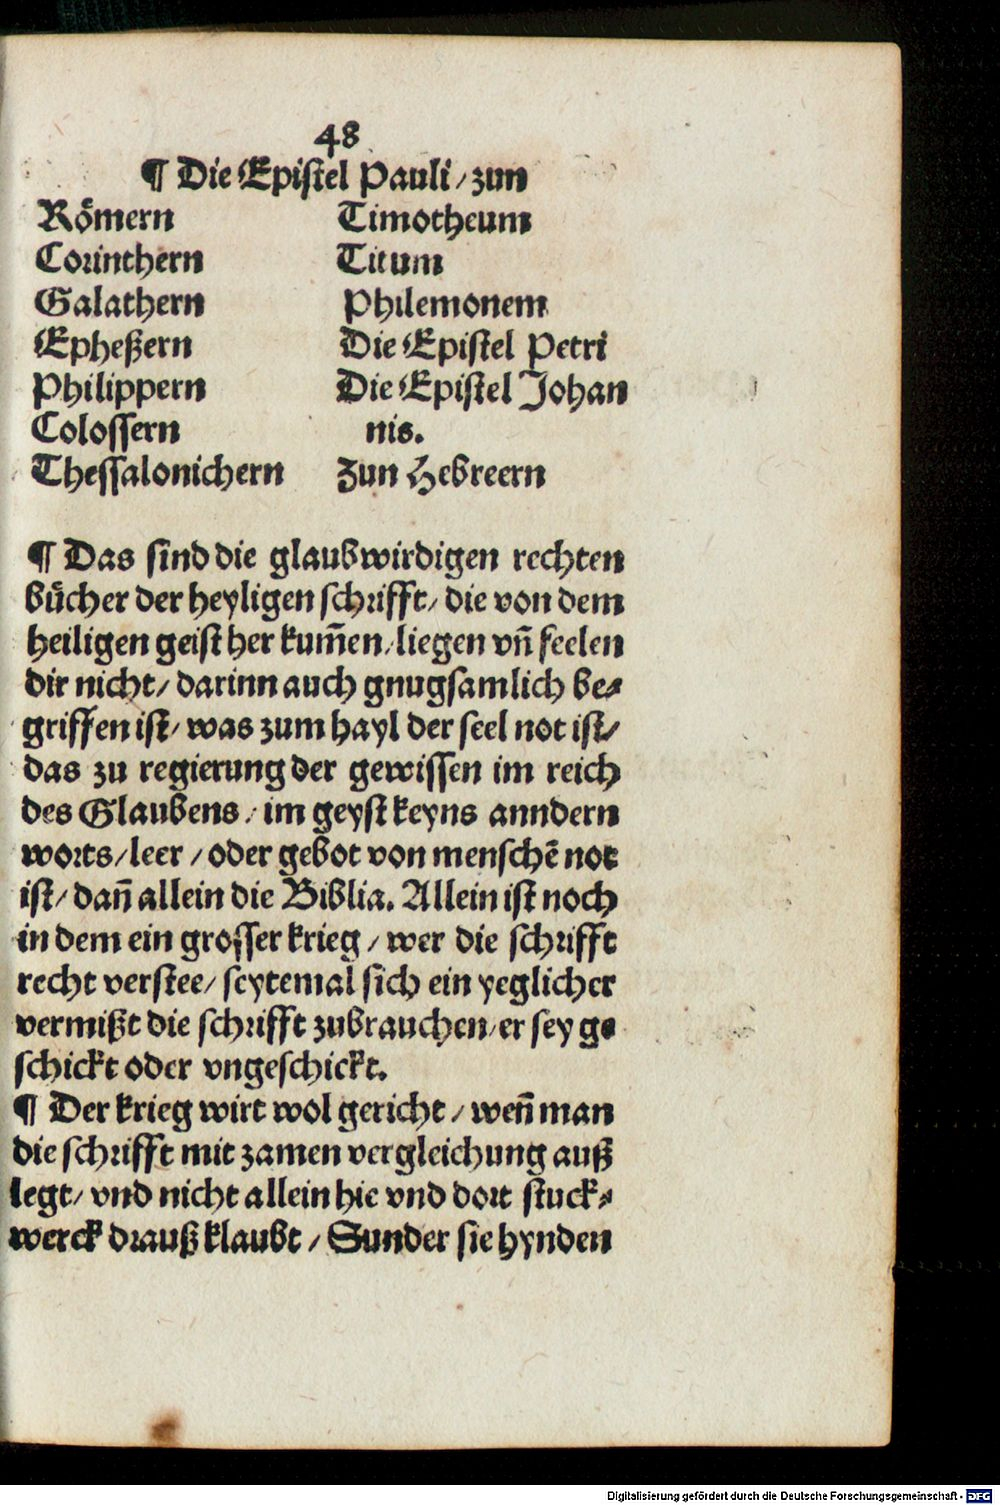 48
¶ Die Epistel Pauli / zun
Rőmern
Corinthern
Galathern
Epheßern
Philippern
Colossern
Thessalonichern
Timotheum
Titum
Philemonem
Die Epistel Petri
Die Epistel Johan
nis.
Zun Hebreern
¶ Das sind die glaubwirdigen rechten
bücher der heyligen schrifft / die von dem
heiligen geist her kum̄en / liegen vn̄ feelen
dir nicht / darinn auch gnugsamlich be⸗
griffen ist / was zum hayl der seel not ist /
das zu regierung der gewissen im reich
des Glaubens / im geyst keyns anndern
worts / leer / oder gebot von menschē not
ist / dan̄ allein die Biblia. Allein ist noch
in dem ein grosser krieg / wer die schrifft
recht verstee / seytemal sich ein yeglicher
vermißt die schrifft zubrauchen / er sey ge
schickt oder vngeschickt.
¶ Der krieg wirt wol gericht / wen̄ man
die schrifft mit zamen vergleichung auß
legt / vnd nicht allein hie vnd dort stuck⸗
werck drauß klaubt / Sunder sie hynden
Digitalisierung gefördert durch die Deutsche Forschungsgemeinschaft - DFG